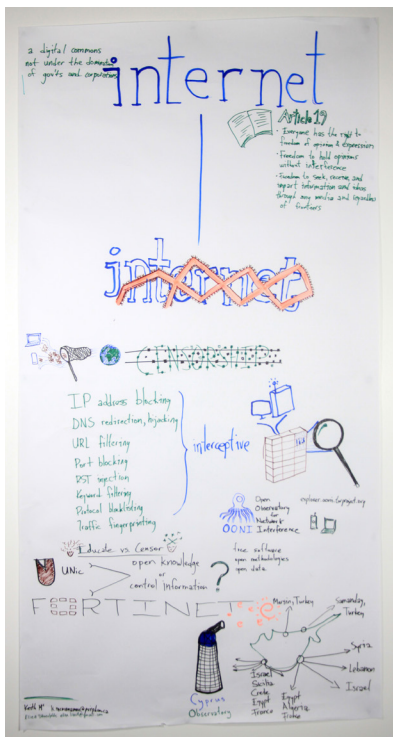 a digital commons
not under the domination
of govts and corporations
internet
Article 19
- Everyone has the right to
freedom of opinion & expression
- Freedom to hold opinions
without interference
- Freedom to seek, receive, and
impart information and ideas
through any media and regardless
of frontiers
internet
CENSORSHIP
IP address blocking
DNS redirection, hijacking
URL filtering
Port blocking
RST injection
Keyword filtering
Protocol blacklisting
Traffic fingerprinting
interceptive
Open
Observatory
for
Network
Interference
OONI
explorer.ooni.torproject.org
free software
open methodologies
open data
Educate vs Censor
UNIC
open knowledge
or
control information
?
FORTINET
Cyprus
Observatory
Mersin, Turkey
Samandag,
Turkey
Syria
Lebanon
Israel
Israel
Sicilia
Crete
Egypt
France
Egypt
Algeria